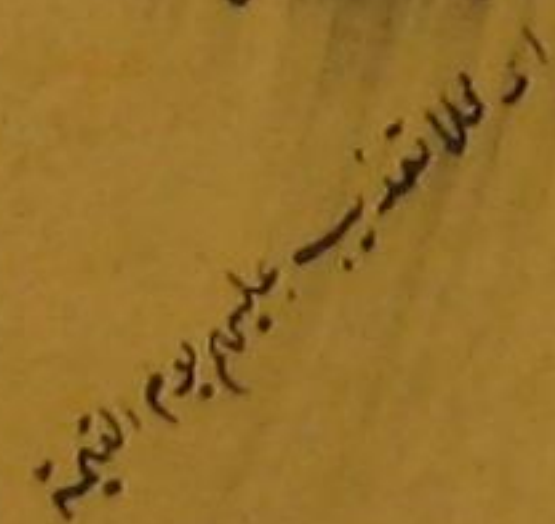 اى فلا تعذيب عليهم يوم القيمة